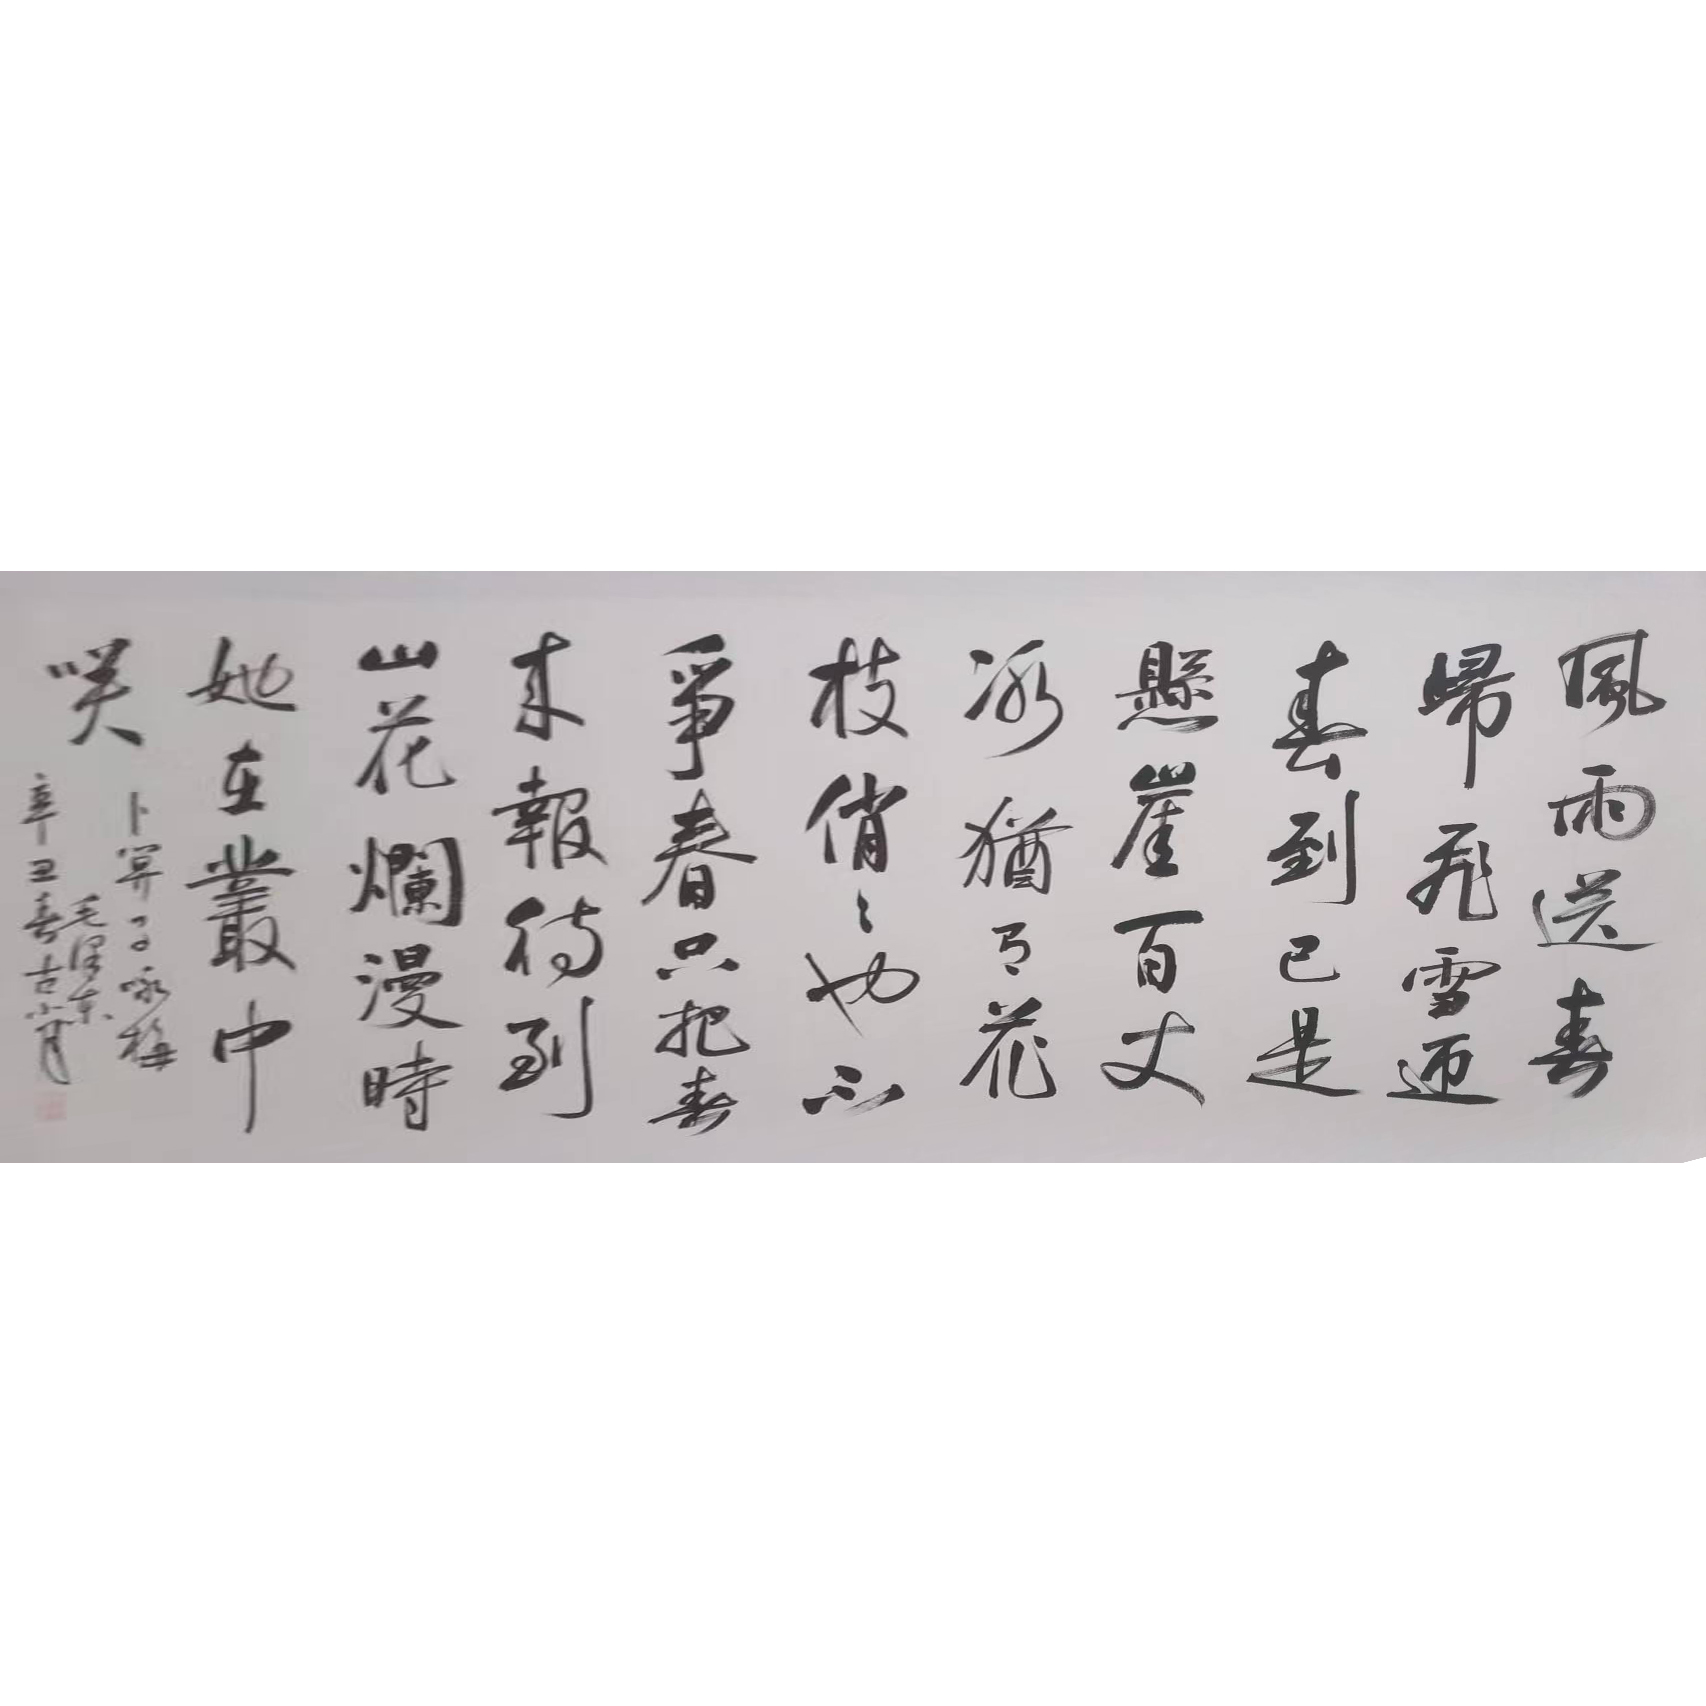 風雨送春
歸飛雪迎
春到已是
懸崖百丈
冰猶有花
枝俏〻也不
爭春只把春
来報待到
山花爛漫時
她在叢中
咲
卜算子咏梅
毛澤東
辛丑春古月